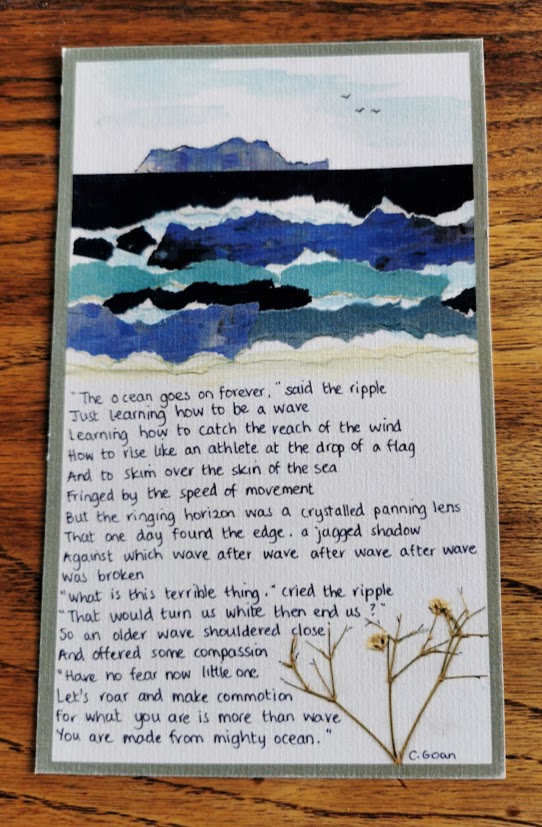 "The ocean goes on forever," said the ripple
Just learning how to be a wave
Learning how to catch the reach of the wind
How to rise like an athlete at the drop of a flag
And to skim over the skin of the sea
Fringed by the speed of movement
But the ringing horizon was a crystalled panning lens
That one day found the edge. a jagged shadow
Against which wave after wave after wave after wave
was broken
"What is this terrible thing," cried the ripple
"That would turn us white then end us?"
So an older wave shouldered close
And offered some compassion
"Have no fear now little one
Let's roar and make commotion
For what you are is more than wave
You are made from mighty ocean."
C. Goan